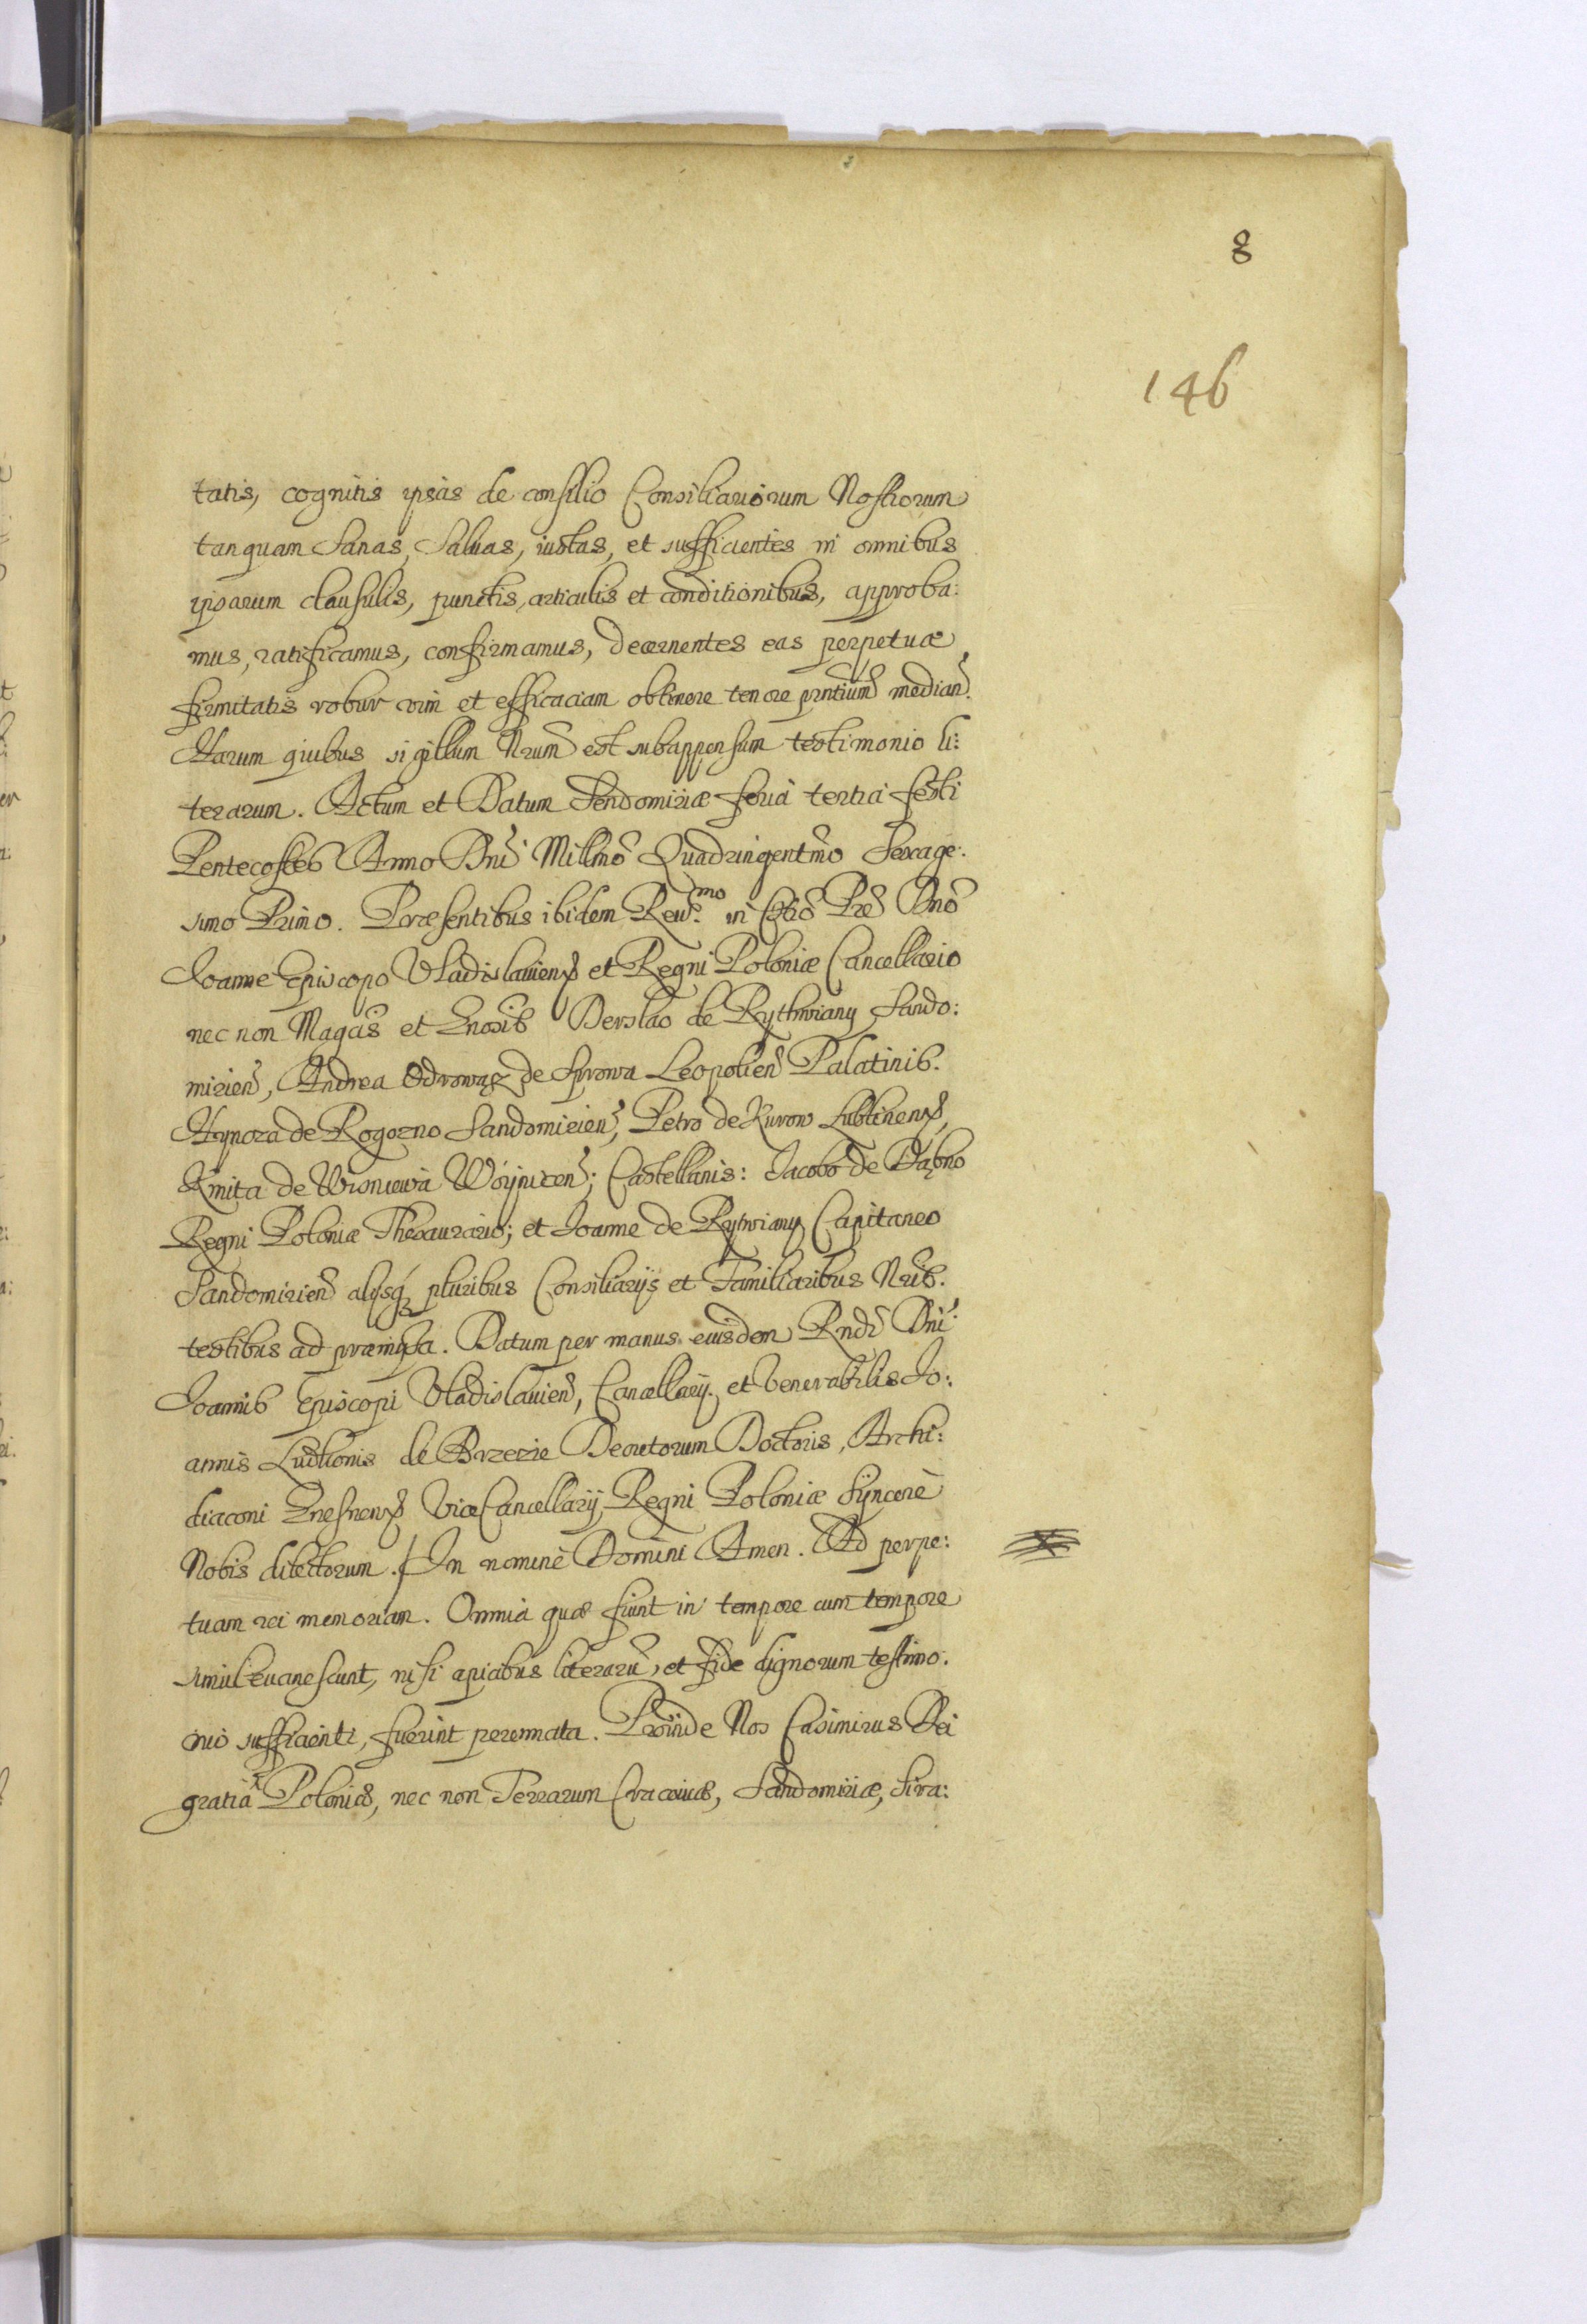 8
146
tatis, cognitis ipsas de consilio Consiliariorum Nostrorum
tanquam Sanas, Saluas, iustas, et sufficientes in omnibus
ipsarum clausulis, punctis, articulis et conditionibus, approba:
mus, ratificamus, confirmamus, decernentes eas perpetuæ
firmitatis robur vim et efficaciam obtinere tenore pntium median.
Harum quibus sigillum Nrum est subappensum testimonio li:
terarum. Actum et Datum Sendomiriæ feria tertia festi
Pentecostes Anno Dni Millmo Quadringentmo Sexage:
simo Primo. Præsentibus ibidem Reud.mo in Chro Pre Dno
Joanne Episcopo Vladislauiens et Regni Poloniæ Cancellario
nec non Magcis et Gnosis Derslao de Rythwiany Sando:
mirien, Andrea Odrowąz de Sprowa Leopolien Palatinis.
Hynoza de Rogozno Sandomirien, Petro de Kurow Lublinens,
Kmita de Wisniewa Wóynicen; Castellanis: Jacobo de Dąbno
Regni Poloniæ Thesaurario; et Joanne de Rytwiany Capitaneo
Sandomirien alijsq pluribus Consiliarijs et Familiaribus Nris.
testibus ad præmissa. Datum per manus eiusdem Rndi Dni
Joannis Episcopi Vladislauien, Cancellarij. et Venerabilis Jo:
annis Lutkonis de Brzezie Decretorum Doctoris, Archi:
diaconi Gnesnens ViceCancellarij Regni Poloniæ Syncerè
Nobis dilectorum. / In nomine Domini Amen. Ad perpe:
tuam rei memoriam. Omnia quæ fiunt in tempore cum tempore
simul euanescunt, nisi apicibus literaru, et fide dignorum testimo:
nio sufficienti, fuerint perennata. Proinde Nos Casimirus Dei
gratia R Poloniæ, nec non Terrarum Cracouiæ, Sandomiriæ, Sira: